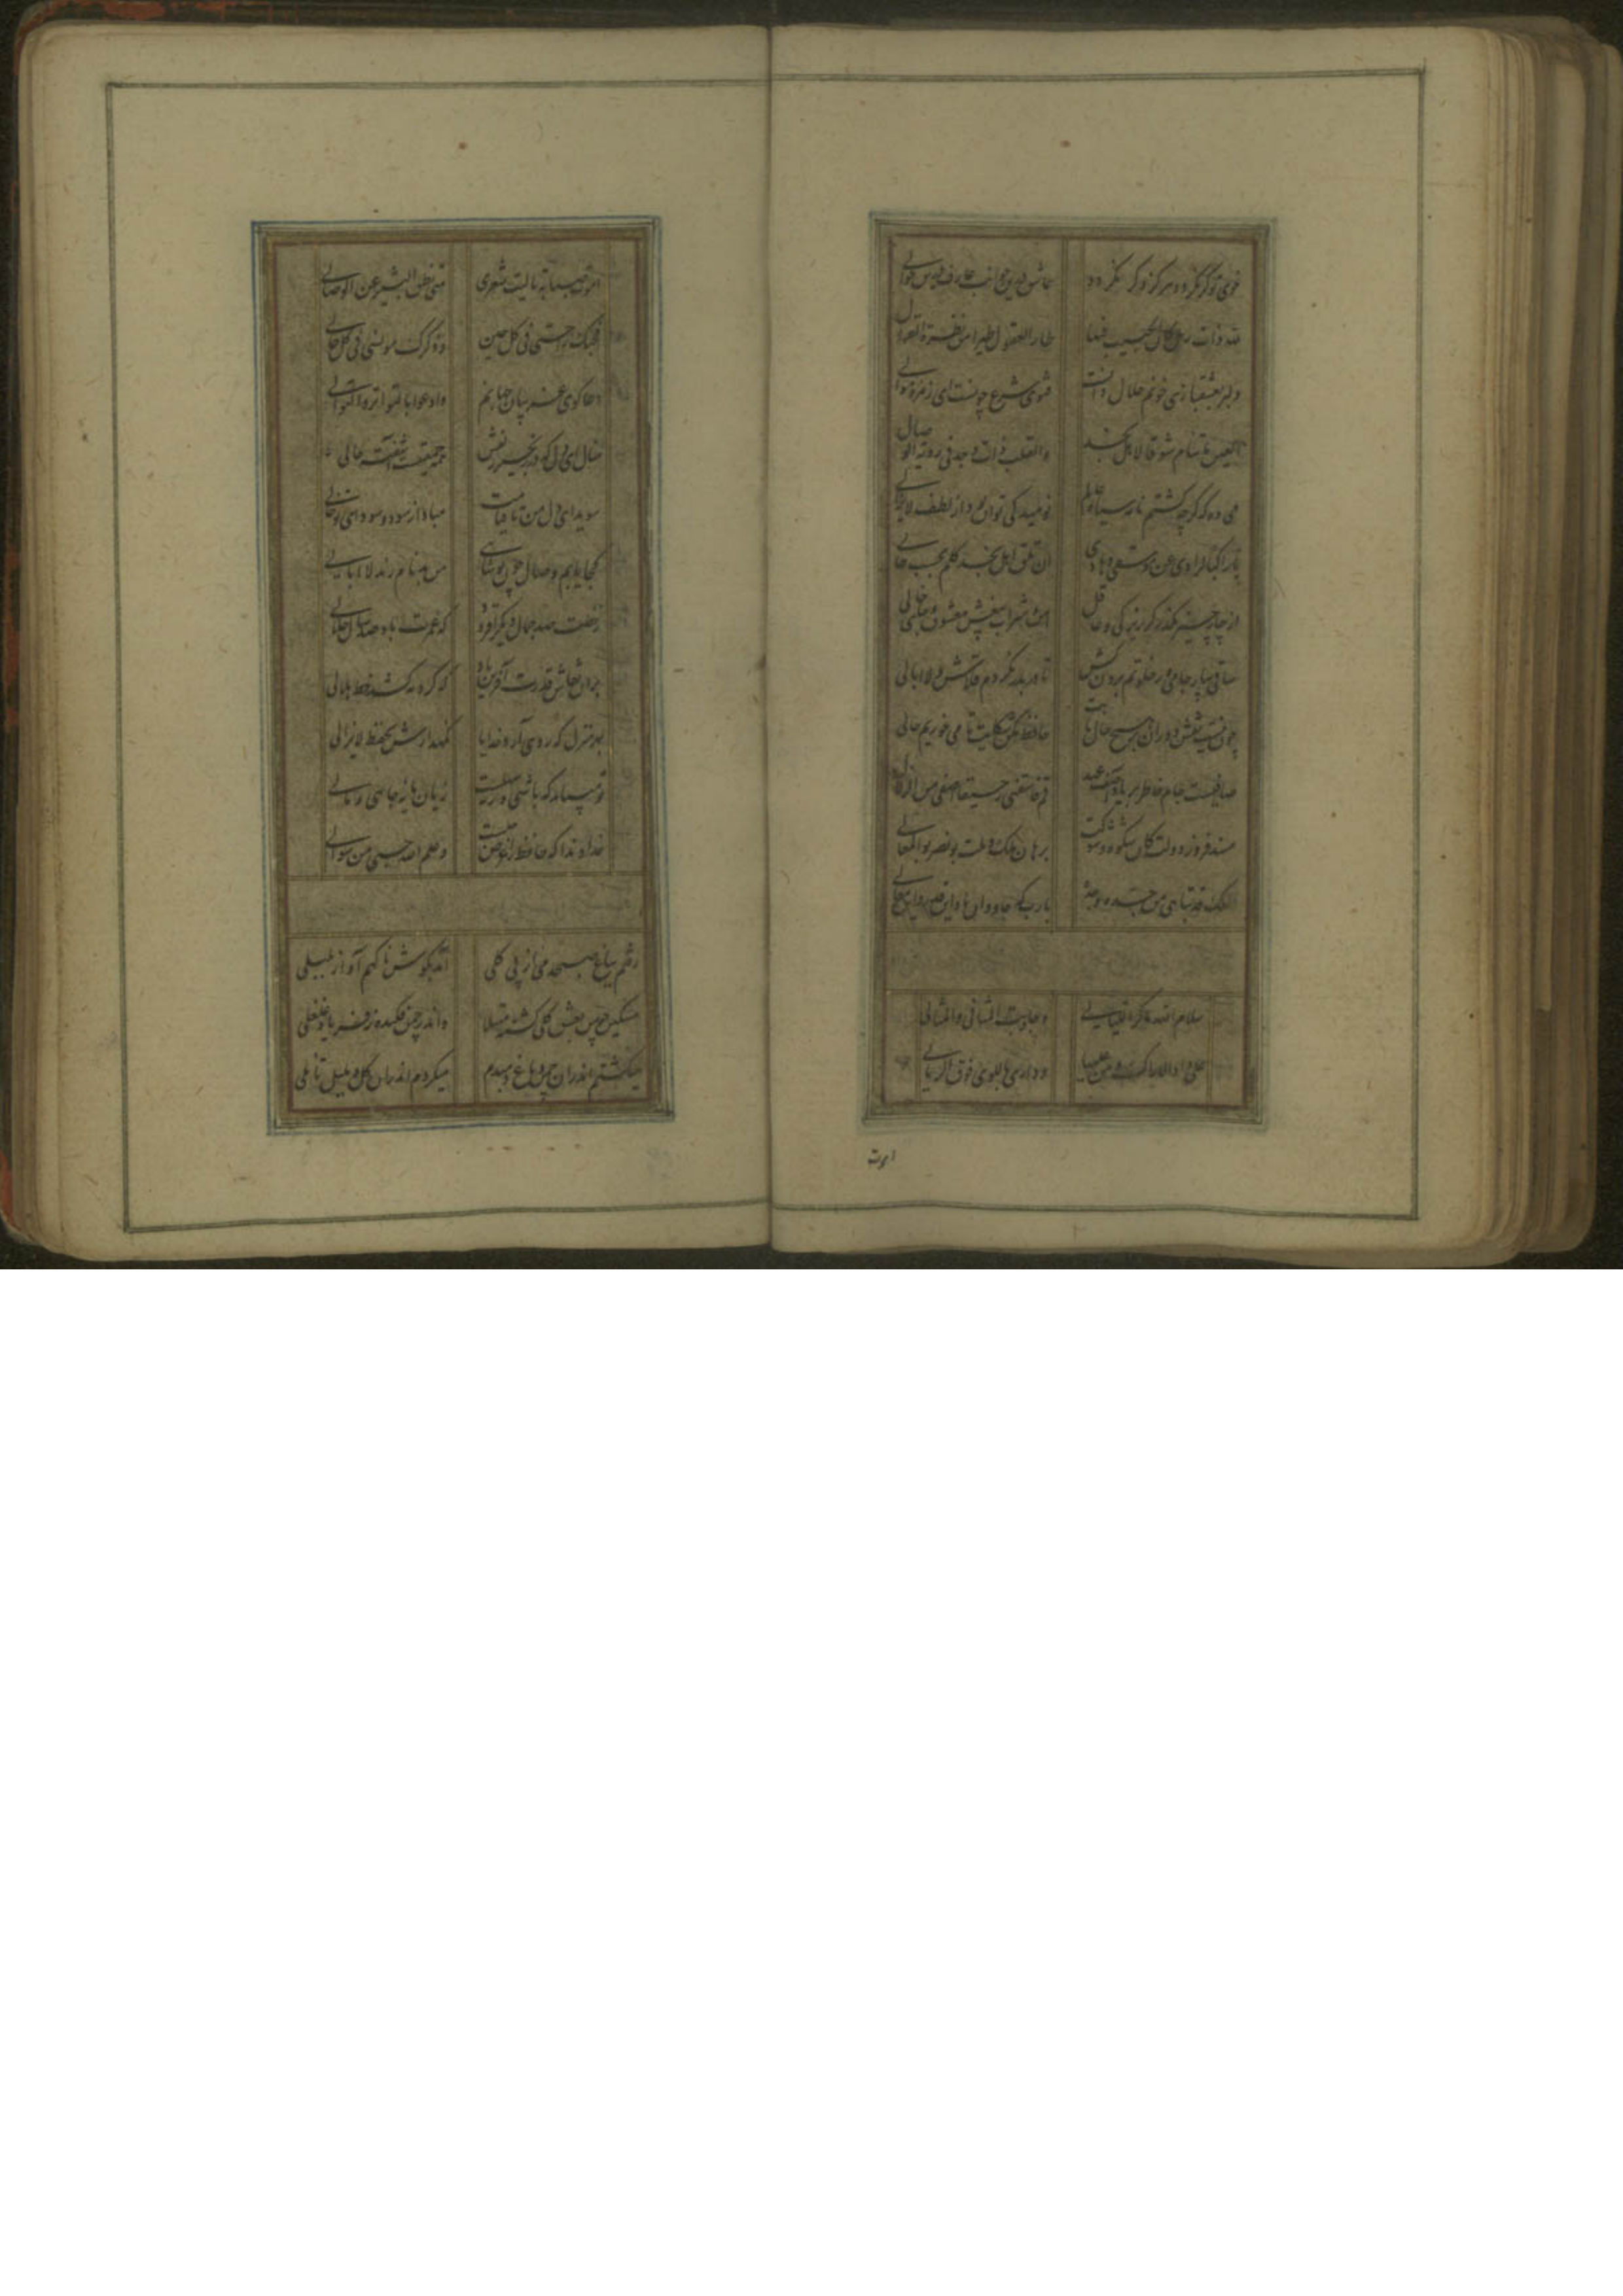 خوی تو گر نگردد هرگز دگر نگردد عاشق درین جوانب عارف درین حوالی
ذات رمل کان الحبیب فیها طار العقول طیرا من نظرة الغزال
دلبر بعشقبازی خونم حلال دانست فتوی شرع چونست ای زمره موالی
العین ما تنام شوقا لاهل نجد والقلب ذاب وجد فی رویة الوصال
می ده که گرچه گشتم نامه سیاه عالم نومید کی توان بود از لطف لایزالی
یا راکبا عن ان تلق اهل نجد کلم بحسب حالی
از چار چیز مگذر گر زیرکی و عاقل امن و شراب بیغش معشوق و جای خالی
ساقی بیار جامی وز خلوتم برون کش تا در بدر بگردم قلاش و لاابالی
چون نیست نقش دوران بر هیچ حال ثابت حافظ مکن شکایت تا می خوریم حالی
صافیست جام خاطر بر یاد آصف عهد قم فاسقنی رحیقا اصفی من الزلال
مسند فروز دولت کان شکوه و شوکت برهان ملک و ملت بونصر بوالمعالی
الملک قد تباهی من جده وجده یا رب که جاودان باد این قدر و این معالی
سلام الله ما کر اللیالی وجاوبت المثانی والمثالی
علی وادی الاراک ومن علیها وداری باللوی فوق الرمالی
اموت
اموت صبابة یا لیت شعری متی نطق البشیر عن الوصالی
فحبک راحتی فی کل حین وذکرک مونسی فی کل حالی
دعاگوی غریبان جهانم وادعوا بالتواتر والتوالی
منال ای دل که در زنجیر زلفش همه جمعیتست آشفته حالی
سویدای دل من تا قیامت مباد از سود و سودای تو خالی
کجا یابم وصال چون تو شاهی من بدنام رند لاابالی
ز خطت صد جمال دیگر افزود که عمرت باد صد سال جلالی
بران نقاش قدرت آفرین باد که گرد مه کشد خط هلالی
بهر منزل که روی آرد خدایا نگهدارش بحفظ لایزالی
تو میباید که باشی ورنه سهلست زیان مایه جاهی و مالی
خداوندا که حافظ را غرض چیست وعلم الله حسبی من سوالی
رفتم بباغ صبحدمی از پی گلی آمد بگوش ناگهم آواز بلبلی
مسکین چو من بعشق گلی گشته مبتلا واندر چمن فکنده ز فریاد غلغلی
میگشتم اندران چمن و باغ دمبدم میکردم اندران گل و بلبل تاملی